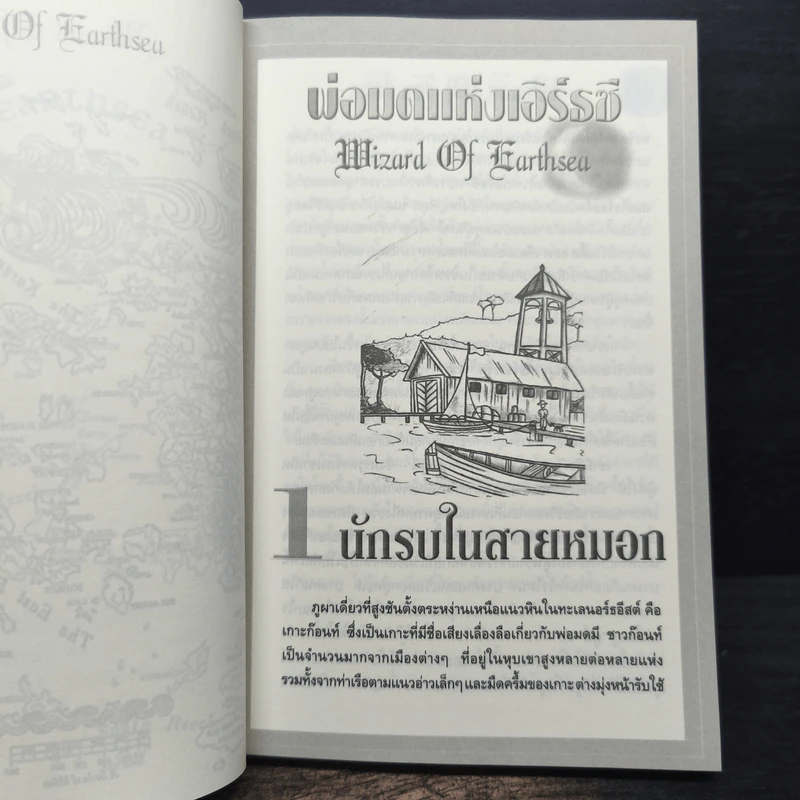 Of Earthsea
พ่อมดแห่งเอิร์ธซี
Wizard Of Earthsea
1 นักรบในสายหมอก
ภูผาเดี่ยวที่สูงชันตั้งตระหง่านเหนือแนวหินในทะเลนอร์ธอีสต์ คือ
เกาะก๊อนท์ ซึ่งเป็นเกาะที่มีชื่อเสียงเลื่องลือเกี่ยวกับพ่อมดมี ชาวก๊อนท์
เป็นจำนวนมากจากเมืองต่างๆ ที่อยู่ในหุบเขาสูงหลายต่อหลายแห่ง
รวมทั้งจากท่าเรือตามแนวอ่าวเล็กๆ และมืดครึ้มของเกาะ ต่างมุ่งหน้ารับใช้